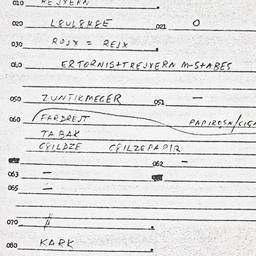 010 REJXERN
020 LGULGRGE 021 O
030 ROJX = REJX
040 ERTORNIS+TREJXERN M-S+ABES
050 ZUNTIKMEGER 051 —
060 FARDREJT PAPIROSN/CIGA
TABAK
CGILDZE CGILZEPAPIR
062 —
063 —
065 —
070
080 KARK